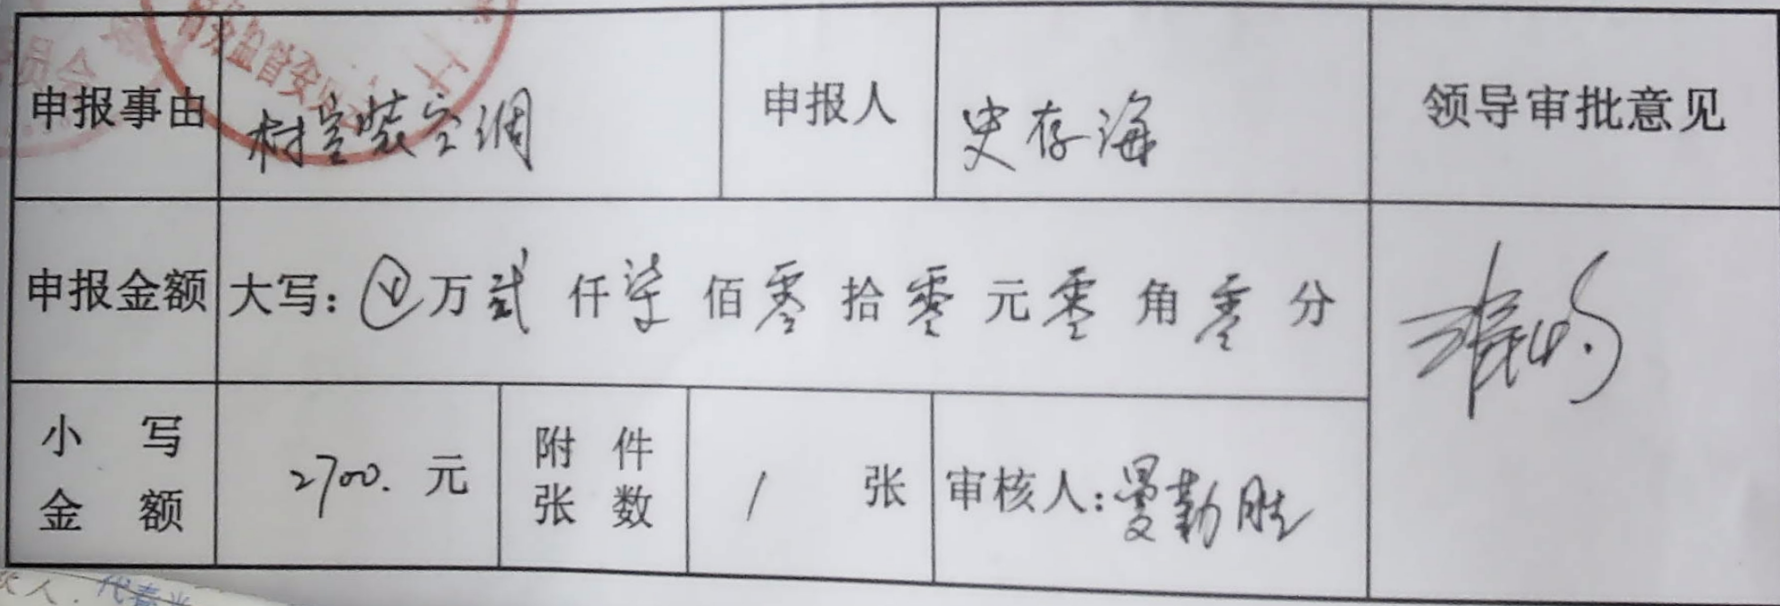 申报事由 村室装空调 申报人 史存海 领导审批意见
申报金额 大写：万贰仟柒佰零拾零元零角零分
小写金额 2700.元 附件张数 1张 审核人：晏勤胜